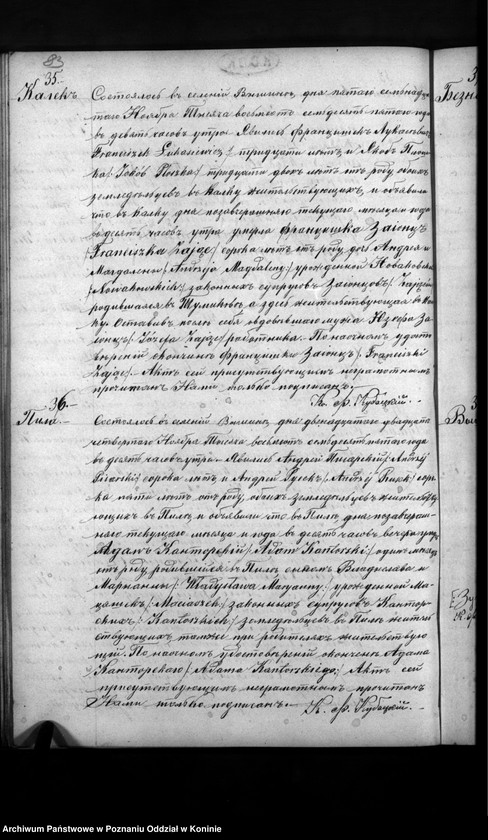 83
35.
Калекъ
Состоялось въ селеніи Вышинъ, дня пятаго семьнадца-
таго Ноября тысяча восемьсотъ семьдесятъ пятаго года
въ девять часовъ утра. Явились Францишекъ Лукашевичъ
/Franciszek Łukasiewicz/ тридцати лѣтъ, и Якобъ
/Jakób/ тридцати двухъ лѣтъ отъ роду, обоихъ
земледѣльцевъ въ Калку жительствующихъ, и объявили
что въ Калку дня позавчерашняго текущаго мѣсяца и года
въ десять часовъ утра умерла Францишка Заіонцъ
/Franciszka Zając/ сорока лѣтъ отъ роду, дочь Андрея и
Магдалены /Andrzeja Magdaleny/ урожденной Новаковскихъ
/Nowakowskich/ законныхъ супруговъ
родившаяся въ а здѣсь жительствующая въ Кал-
ку. Оставивъ послѣ себя овдовѣвшаго мужа Юзефа За-
іонцъ /Józefa Zając/ работника. По насочномъ удосто-
вѣреніи окончины Францишки Заіонцъ /Franciszki
Zając/. Актъ сей присутствующимъ неграмотнымъ
прочитанъ Нами только подписанъ.
Кс. Фр. Кубацкій.
36.
Пила
Состоялось въ селеніи Вышинъ, дня двѣнадцатаго двадцать
четвертаго Ноября тысяча восемьсотъ семьдесятъ пятаго года
въ десять часовъ утра. Явились Андрей Писарскій /Andrzéj
Pisarski/ сорока лѣтъ и Андрей /Andrzéj/ соро-
ка пяти лѣтъ отъ роду, обоихъ земледѣльцевъ жительству-
ющихъ въ Пилѣ, и объявили что въ Пилѣ дня позавчераш-
няго текущаго мѣсяца и года въ десять часовъ вечера умеръ
Адамъ Канторскій /Adam Kantorski/ одинъ мѣсяцъ
отъ роду, родившійся въ Пилѣ сынъ Владислава и
Маріанны /Władysława Maryanny/ урожденной Ма-
цяшекъ законныхъ супруговъ Кантор-
скихъ /Kantorskich/ земледѣльцевъ въ Пилѣ житель-
ствующихъ также при родителяхъ жительствую-
щій. По насочномъ удостовѣреніи окончины Адама
Канторскаго /Adama Kantorskiego/ Актъ сей
присутствующимъ неграмотнымъ прочитанъ
Нами только подписанъ.
Кс. Фр. Кубацкій.
Archiwum Państwowe w Poznaniu Oddział w Koninie